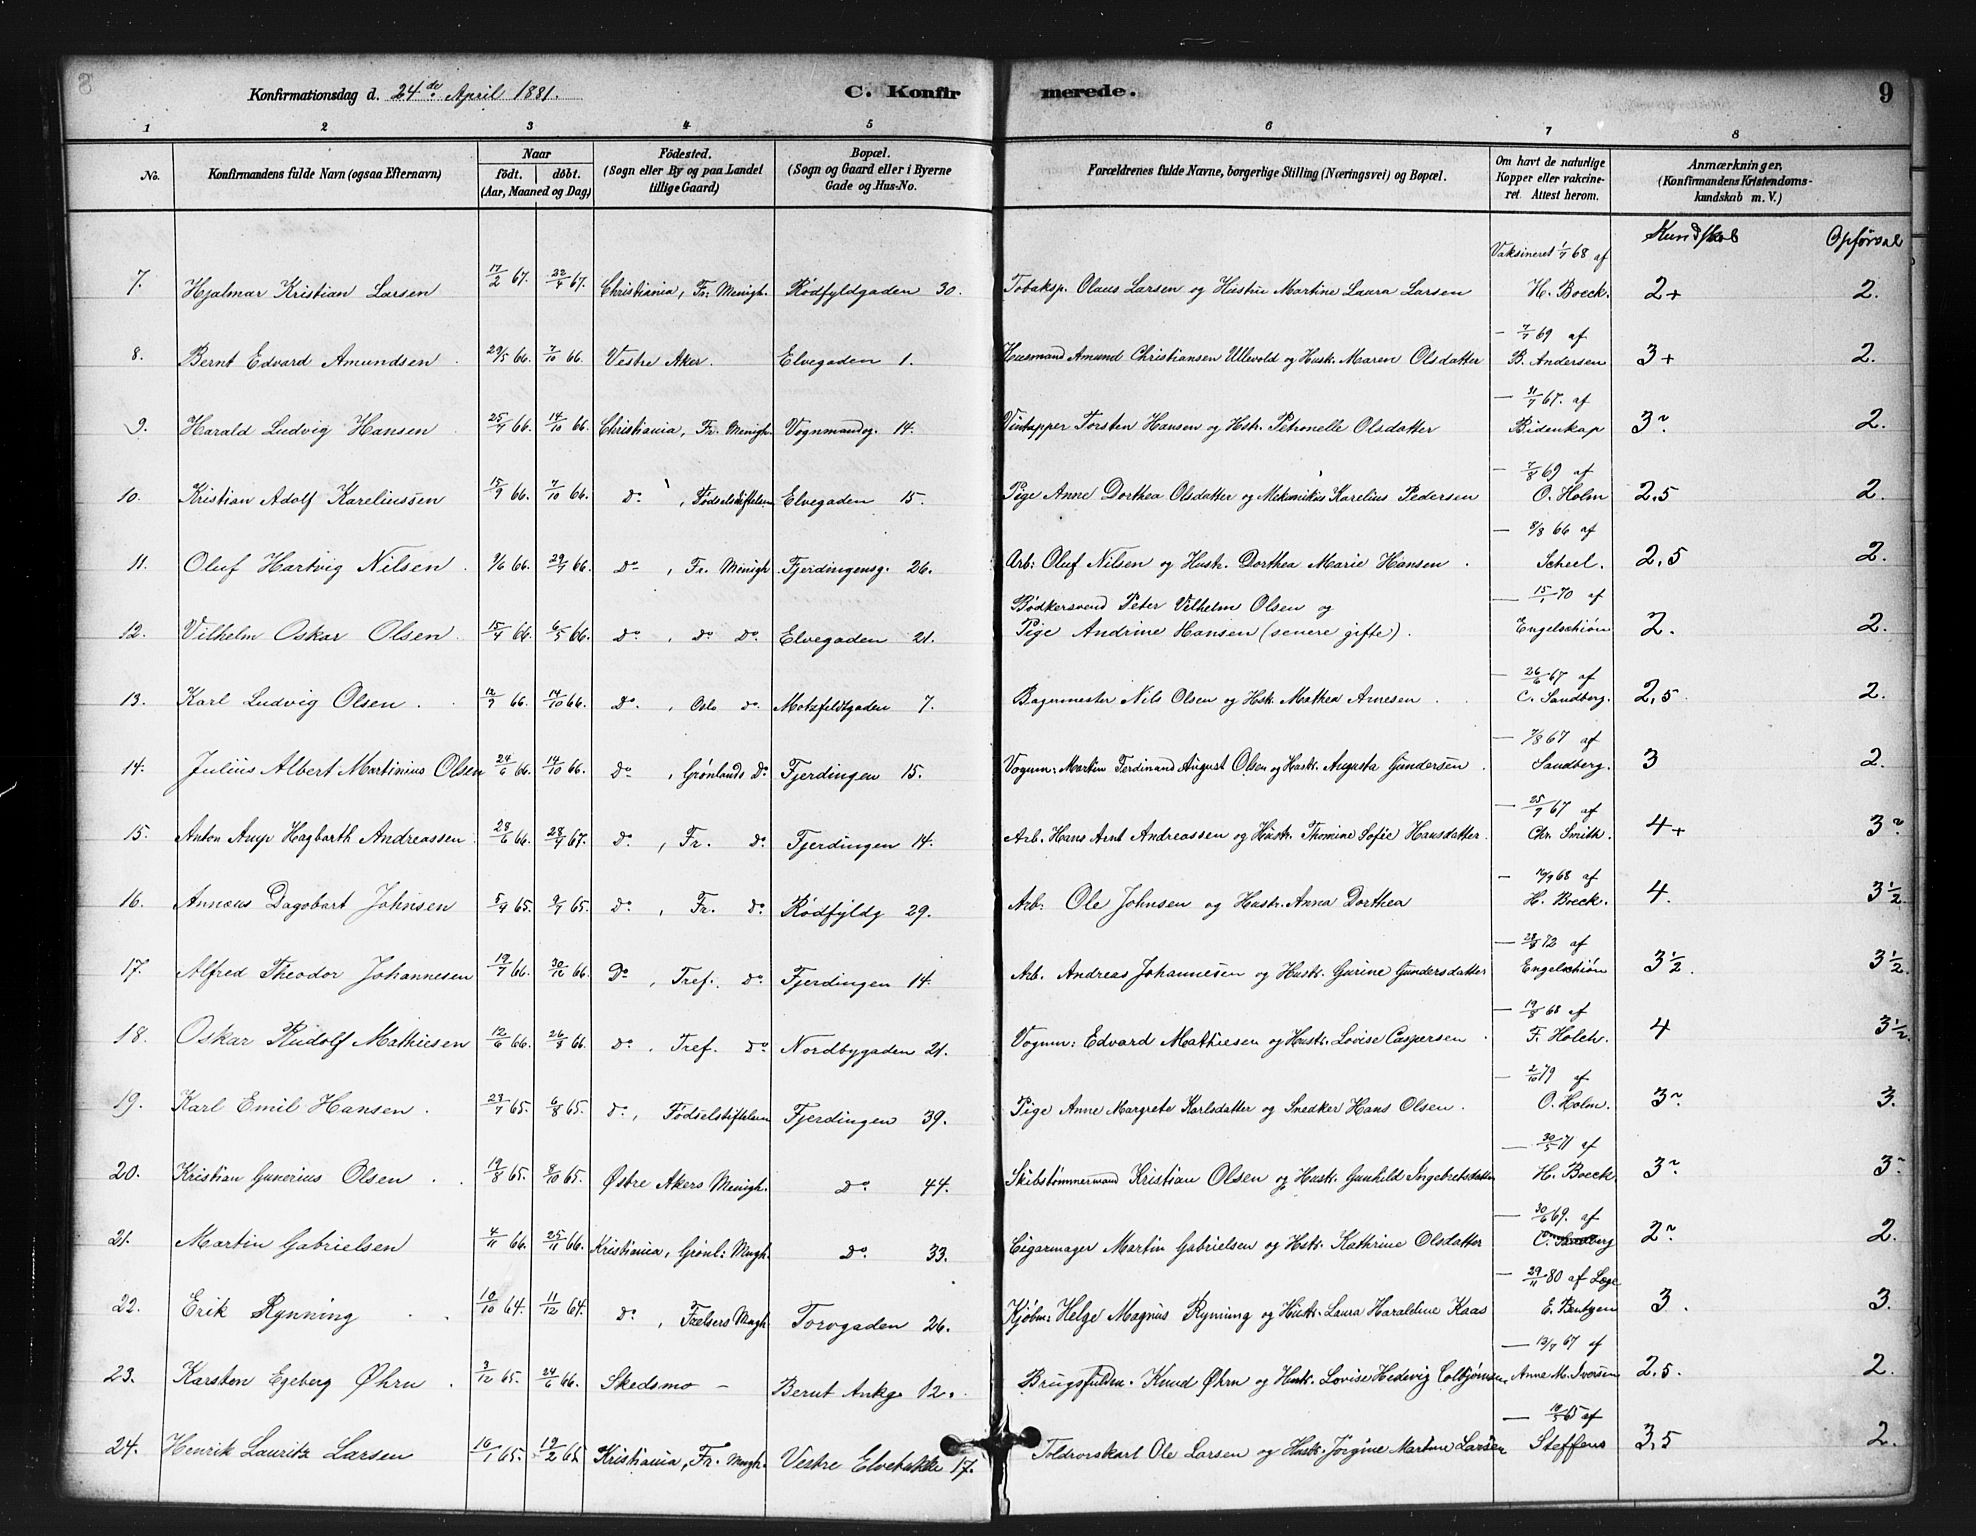 8
Konfirmationsdag d. 24de April 1881.
C. Konfirmerede.
9
1 2 3 4 5 6 7 8
No.
Konfirmandens fulde Navn (ogsaa Efternavn)
Naar
født. døbt.
(Aar, Maaned og Dag)
Fødested.
(Sogn eller By og paa Landet
tillige Gaard)
Bopæl.
(Sogn og Gaard eller i Byerne
Gade og Hus-No.
Forældrenes fulde Navne, borgerlige Stilling (Næringsvei) og Bopæl.
Om havt de naturlige
Kopper eller vakcineret. Attest herom.
Anmærkninger,
(Konfirmandens Kristendomskundskab m. V.)
Kundskab Opførsel
7. Hjalmar Kristian Larsen 17/2 67. 22/4 67. Christiania, Fr. Menigh. Rödfyldgaden 30. Tobaksp. Olaus Larsen og Hustru Martine Laura Larsen Vaksineret 1/7 68 af H. Boeck. 2+ 2.
8. Bernt Edvard Amundsen 29/5 66 7/10 66. Vestre Aker. Elvegaden 1. Huusmand Amund Christiansen Ullevold og Hust. Maren Olsdatter — 7/7 69 af B. Andersen 3+ 2.
9. Harald Ludvig Hansen 25/7 66. 14/10 66. Christiania, Fr. Menigh. Vognmandsg. 14. Vintapper Torsten Hansen og Hstr. Petronelle Olsdatter — 31/7 67. af Bidenkap 3~ 2.
10. Kristian Adolf Kareliussen 15/9 66. 7/10 66. Do , Fødselsstiftelsen Elvegaden 15. Pige Anne Dorthea Olsdatter og Mekanikus Karelius Pedersen — 7/8 69 af O. Holm 2,5 2.
11. Oluf Hartvig Nilsen 9/6 66. 29/7 66. Do , Fr. Menigh Fjerdingensg. 26. Arb: Oluf Nilsen og Hustr. Dorthea Marie Hansen — 8/8 66 af Scheel. 2,5 2.
12. Vilhelm Oskar Olsen 15/4 66. 6/5 66. Do , Do Do. Elvegaden 21. Bødkersvend Peter Vilhelm Olsen og
Pige Andrine Hansen (senere gifte). — 15/1 70 af Engelschiøn 2. 2.
13. Karl Ludvig Olsen 12/9 66. 14/10 66. Do , Oslo do Motzfeldtgaden 7. Bagermester Nils Olsen og Hst. Mathea Arnesen — 26/6 67 af C. Sandberg. 2,5 2.
14. Julius Albert Martinius Olsen 24/6 66. 14/10 66. Do , Grønlands Do Fjerdingen 15. Vognm: Martin Ferdinand August Olsen og Hustr. Augusta Gundersen — 7/8 67 af Sandberg. 3 2.
15. Anton Arup Hagbarth Andreassen 28/6 66. 28/4 67. Do , Fr. Do Fjerdingen 14. Arb. Hans Arnt Andreassen og Hustr. Thomine Sofie Hansdatter. — 25/9 67 af Chr. Smith. 4+ 3~
16. Annæus Dagobart Johnsen 5/4 65. 9/7 65. Do , Fr. do. Rödfyldg 29. Arb. Ole Johnsen og Hustr. Anna Dorthea — 16/9 68 af H. Boeck. 4. 3 1/2.
17. Alfred Theodor Johannesen 19/7 66. 30/12 66. Do , Tref. Do. Fjerdingen 14. Arb. Andreas Johannesen og Hustr. Gurine Gundersdatter — 28/8 72 af Engelschiøn 3 1/2. 3 1/2.
18. Oskar Rudolf Mathiesen 12/6 66. 26/8 66. do. Tref. do Nordbygaden 21. Vognm: Edvard Mathiesen og Hustr. Lovise Caspersen — 19/8 68 af F. Holch. 4 3 1/2.
19. Karl Emil Hansen 23/7 65. 6/8 65. do. , Födselsstiftelsen Fjerdingen 39. Pige Anne Margrete Karlsdatter og Snedker Hans Olsen — 2/10 79 af O. Holm. 3~ 3.
20. Kristian Gunerius Olsen 19/8 65. 8/10 65. Østre Akers Menigh. Do. 44. Skibstømmermand Kristian Olsen og Hustr. Gunhild Ingebretsdatter — 30/5 71 af H. Boeck 3~ 3~
21. Martin Gabrielsen 4/11 66. 25/11 66. Kristiania, Grønl: Mngh. Do. 33. Cigarmager Martin Gabrielsen og Hstr. Kathrine Olsdatter — 30/6 69. af C. Sandberg 2~ 2.
22. Erik Rynning 10/10 64. 11/12 64. do. , Frelsers Mngh Torvgaden 26. Kjøbm: Helge Magnus Rynning og Hustr. Laura Haraldine Kaas — 29/11 80 af Læge E. Bentzen 3. 3.
23. Karsten Egeberg Øhrn 3/12 65. 24/6 66. Skedsmo — Bernt Ankg. 12. Brugsfuldm. Knud Øhrn og Hustr. Lovise Hedevig Colbjørnsen. — 13/7 67 af Anne M. Iversen 2,5. 2.
24. Henrik Lauritz Larsen 16/1 65. 19/2 65. Kristiania, Fr. Mngh. Vestre Elvebakke 17. Toldrorskarl Ole Larsen og Hustr. Jörgine Martine Larsen — 10/5 65 af Steffens 3,5 2.